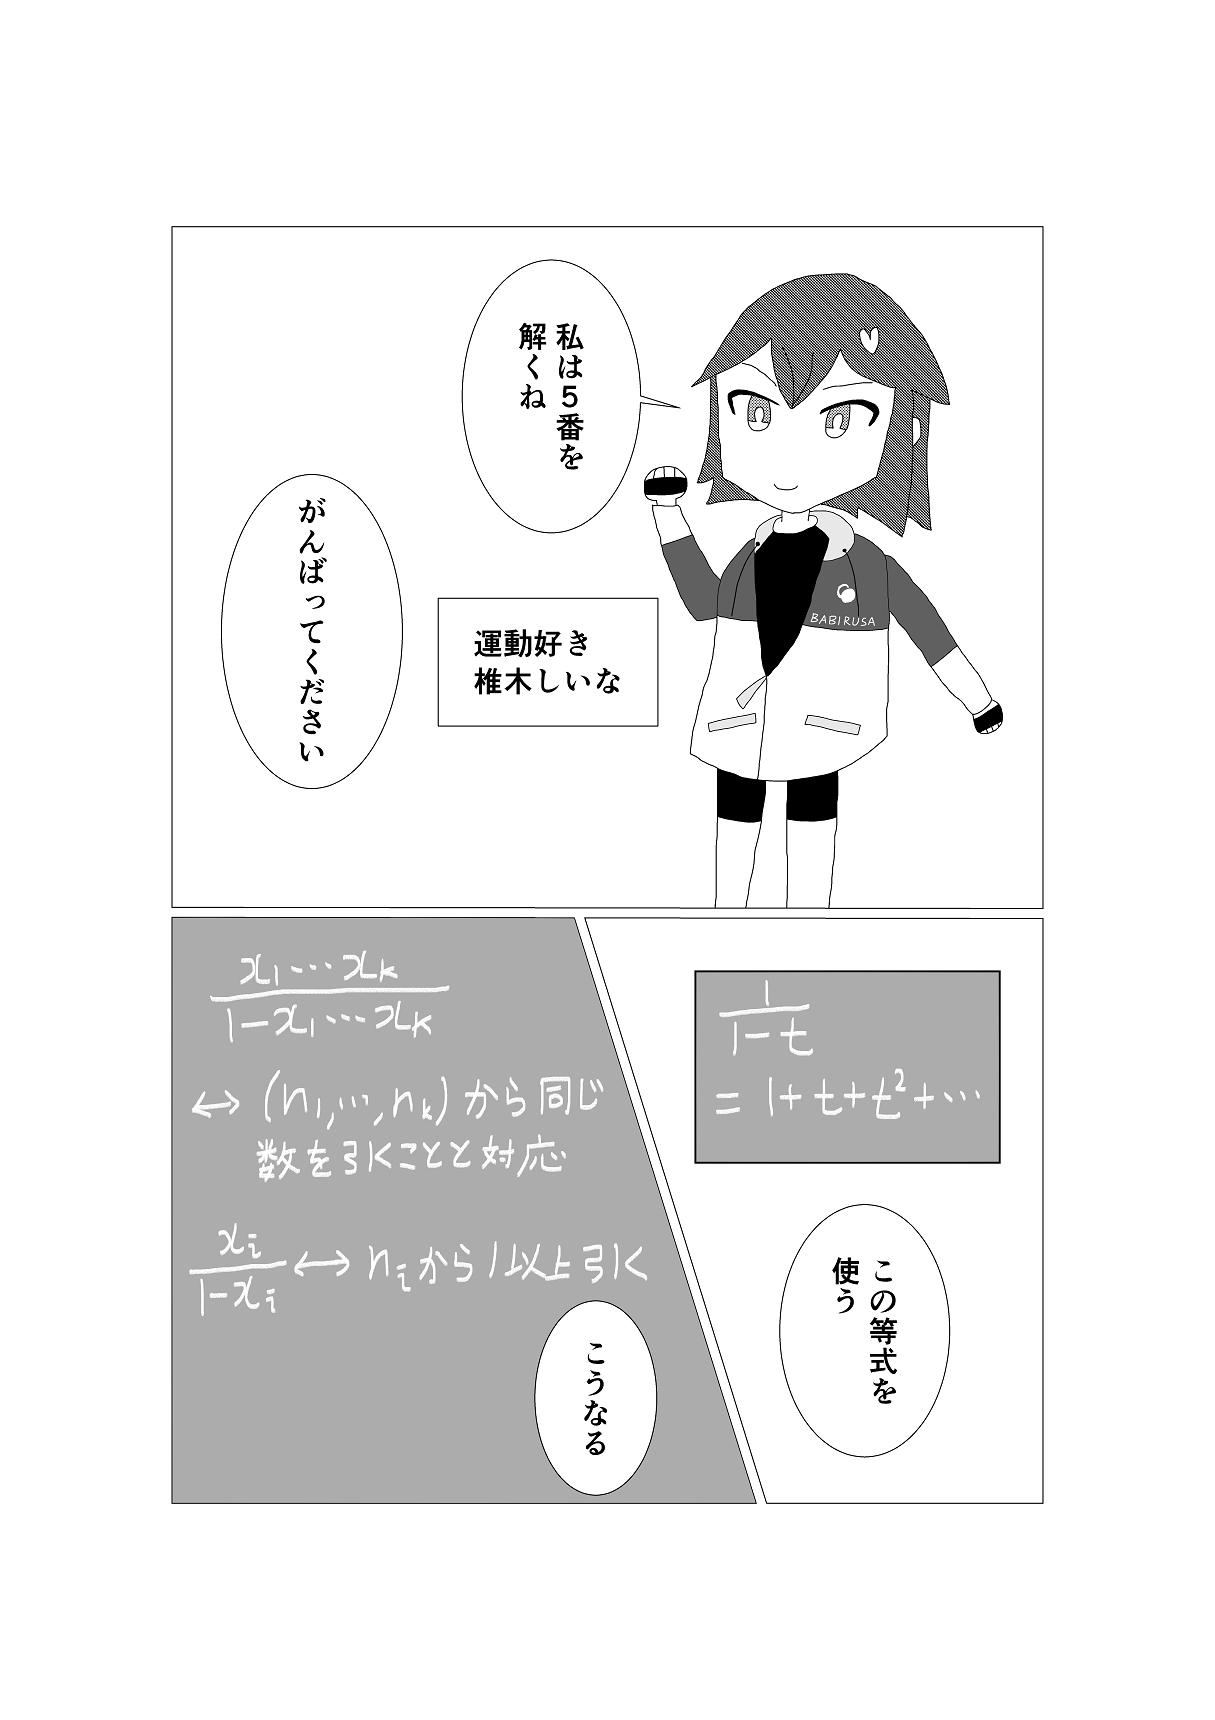 私は5番を
解くね
BABIRUSA
運動好き
椎木しいな
がんばってください
1/(1-t)
= 1+t+t²+…
この等式を
使う
x₁…xₖ/(1-x₁…xₖ)
↔ (n₁,…,nₖ)から同じ
数を引くことと対応
xᵢ/(1-xᵢ) ↔ nᵢから1以上引く
こうなる